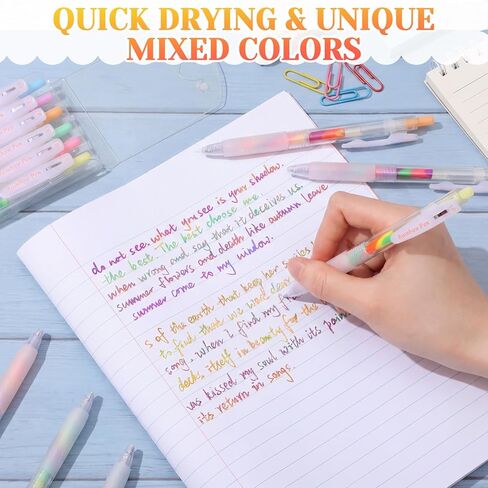 QUICK DRYING & UNIQUE
MIXED COLORS
do not see. what you see is your shadow.
the best. The best choose me.
when wrong and say that it deceives us.
summer flowers and death like autumn leave
summer come to my window.
s of the earth that keep her
to find that we were dear
song, when I find my
itself in beauty for the
was kissed my soul with its pain
its return in songs.